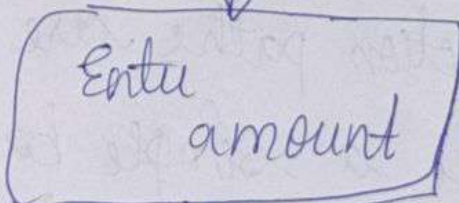 Enter
amount